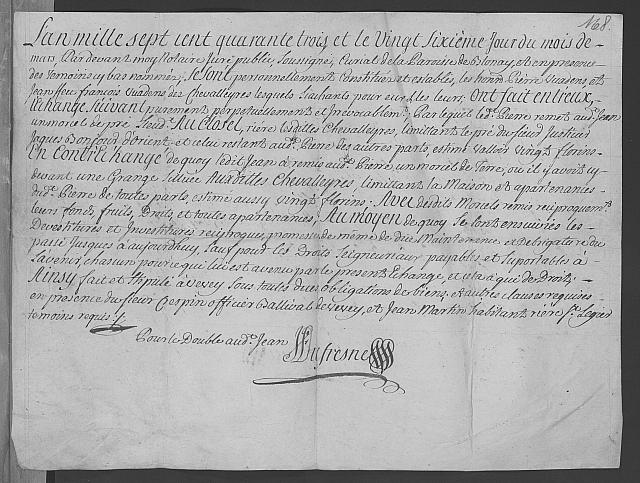 N.o 8
L'an mille sept cent quarante trois et le Vingt Sixiéme Jour du mois de
mars, Par devant moy Notaire Juré public, Soussigné, Curial de la Paroisse de Blonay, et en presence
des temoins cy bas nommez; se sont personnellement constitués et establis, les honn. Pierre, et
Jean feu François des Chevalleyres lesquels Sachants pour eux & les leurs, ont fait entreux,
Echange suivant purement perpetuellement et irrevocablem.t Par lequel led. Pierre remet aud. Jean
un morcel de pré Au Clozel, riére lesdittes Chevalleyres, limittant le pré du Sieur Justicier
d'orient, et celui restant aud. Pierre des autres parts, estimé valloir vingt florins.
En Contréchange de quoy ledit Jean a remis aud. Pierre, un morcel de Terre, ou il y avoit cy
devant une Grange Situéé Auxdittes Chevalleyres, limittant la Maison et apartenances
dud. Pierre de toutes parts, estimé aussy vingt florins; Avec desdits Morcels remis reciproquem.t
leurs fonds, fruits, Droits, et toutes apartenances; Au moyen de quoy se sont ensuiviés les
Devestitures et Investitures reciproques, promesses de même de due Maintenence, et de
passé jusques à aujourdhuy, Sauf pour les Droits Seigneuriaux payables et Suportables à
l'avenir, chascun pour ce qui luy est avenu par le present Echange, et cela à qui de Droit,
Ainsy fait et stipulé à Vevey sous toutes dues obligations de biens, et autres clauses requises
en presence du Sieur Crespin officier Ballival de Vevey, et Jean Martin habitant riére
temoins requis
Pour le Double aud. Jean
Dufresne